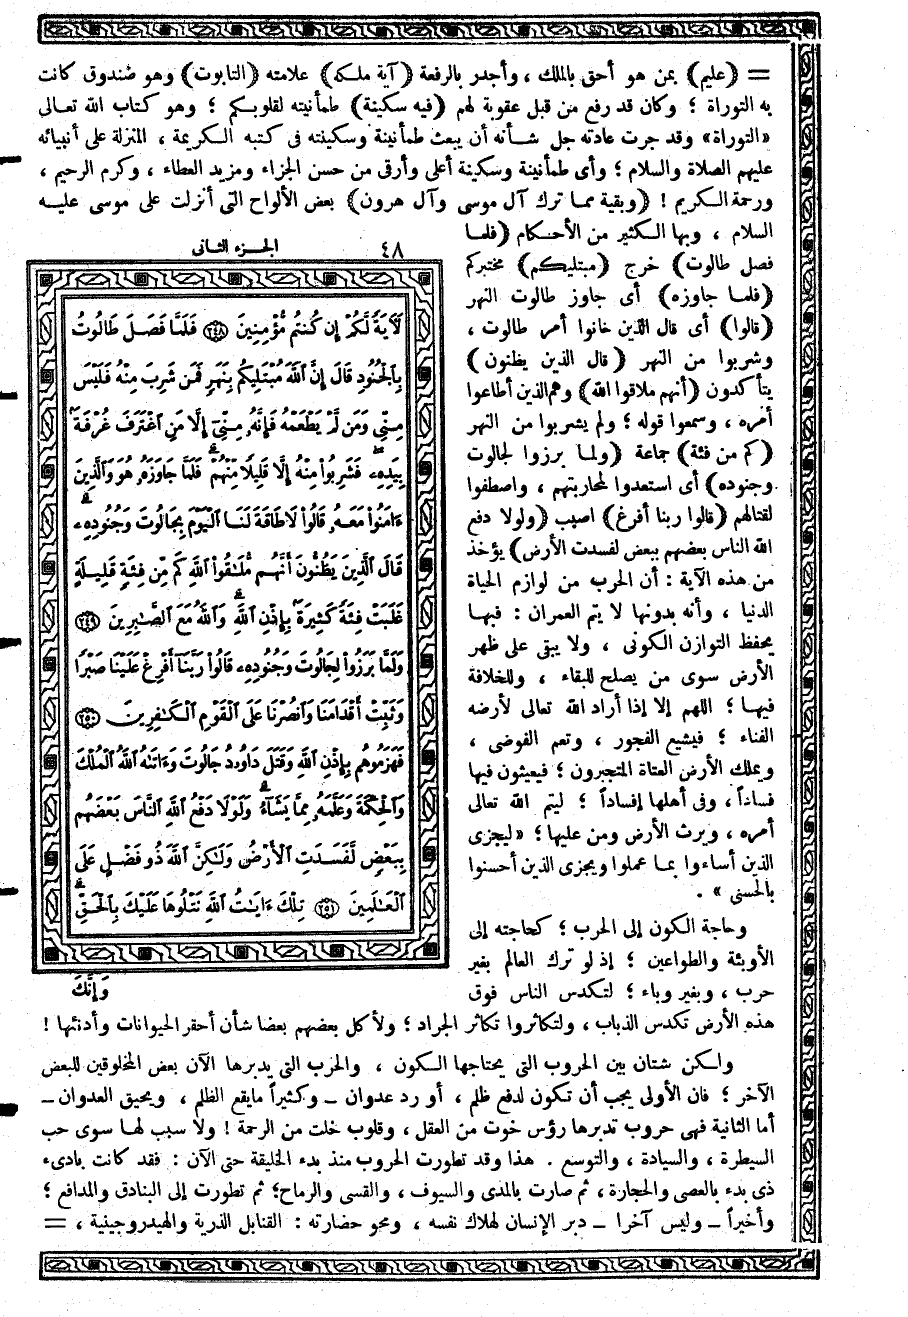 = (عليم) بمن هو أحق بالملك ، وأجدر بالرفعة (آية ملكه) علامته (التابوت) وهو صندوق كانت
به التوراة ؛ وكان قد رفع من قبل عقوبة لهم (فيه سكينة) طمأنينة لقلوبكم ؛ وهو كتاب الله تعالى
«التوراة» وقد جرت عادته جل شأنه أن يبعث طمأنينة وسكينته فى كتبه الكريمة ، المنزلة على أنبيائه
عليهم الصلاة والسلام ؛ وأى طمأنينة وسكينة أعلى وأرقى من حسن الجزاء ومزيد العطاء ، وكرم الرحيم ،
ورحمة الكريم ! (وبقية مما ترك آل موسى وآل هرون) بعض الألواح التى أنزلت على موسى عليه
السلام ، وبها الكثير من الأحكام (فلما
فصل طالوت) خرج (مبتليكم) مختبركم
(فلما جاوزه) أى جاوز طالوت النهر
(قالوا) أى قال الذين خانوا أمر طالوت ،
وشربوا من النهر (قال الذين يظنون)
يتأكدون (أنهم ملاقوا الله) وهم الذين أطاعوا
أمره ، وسمعوا قوله ؛ ولم يشربوا من النهر
(كم من فئة) جماعة (ولما برزوا لجالوت
وجنوده) أى استعدوا لمحاربتهم ، واصطفوا
لقتالهم (قالوا ربنا أفرغ) اصبب (ولولا دفع
الله الناس بعضهم ببعض لفسدت الأرض) يؤخذ
من هذه الآية : أن الحرب من لوازم الحياة
الدنيا ، وأنه بدونها لا يتم العمران : فبها
يحفظ التوازن الكونى ، ولا يبقى على ظهر
الأرض سوى من يصلح للبقاء ، وللخلافة
فيها ؛ اللهم إلا إذا أراد الله تعالى لأرضه
الفناء ؛ فيشيع الفجور ، وتعم الفوضى ،
ويملك الأرض العتاة المتجبرون ؛ فيعيثون فيها
فساداً ، وفى أهلها إفساداً ؛ ليتم الله تعالى
أمره ، ويرث الأرض ومن عليها ؛ «ليجزى
الذين أساءوا بما عملوا ويجزى الذين أحسنوا
بالحسنى» .
وحاجة الكون إلى الحرب ؛ كحاجته إلى
الأوبئة والطواعين ؛ إذ لو ترك العالم بغير
حرب ، وبغير وباء ؛ لتكدس الناس فوق
٤٨
الجزء الثانى
لَآيَةً لَّكُمْ إِن كُنتُم مُّؤْمِنِينَ ٢٤٨ فَلَمَّا فَصَلَ طَالُوتُ
بِٱلْجُنُودِ قَالَ إِنَّ ٱللَّهَ مُبْتَلِيكُم بِنَهَرٍ فَمَن شَرِبَ مِنْهُ فَلَيْسَ
مِنِّى وَمَن لَّمْ يَطْعَمْهُ فَإِنَّهُۥ مِنِّىٓ إِلَّا مَنِ ٱغْتَرَفَ غُرْفَةَۢ
بِيَدِهِۦ ۚ فَشَرِبُوا۟ مِنْهُ إِلَّا قَلِيلًا مِّنْهُمْ ۚ فَلَمَّا جَاوَزَهُۥ هُوَ وَٱلَّذِينَ
ءَامَنُوا۟ مَعَهُۥ قَالُوا۟ لَا طَاقَةَ لَنَا ٱلْيَوْمَ بِجَالُوتَ وَجُنُودِهِۦ ۚ
قَالَ ٱلَّذِينَ يَظُنُّونَ أَنَّهُم مُّلَـٰقُوا۟ ٱللَّهِ كَم مِّن فِئَةٍ قَلِيلَةٍ
غَلَبَتْ فِئَةً كَثِيرَةَۢ بِإِذْنِ ٱللَّهِ ۗ وَٱللَّهُ مَعَ ٱلصَّـٰبِرِينَ ٢٤٩
وَلَمَّا بَرَزُوا۟ لِجَالُوتَ وَجُنُودِهِۦ قَالُوا۟ رَبَّنَآ أَفْرِغْ عَلَيْنَا صَبْرًا
وَثَبِّتْ أَقْدَامَنَا وَٱنصُرْنَا عَلَى ٱلْقَوْمِ ٱلْكَـٰفِرِينَ ٢٥٠
فَهَزَمُوهُم بِإِذْنِ ٱللَّهِ وَقَتَلَ دَاوُۥدُ جَالُوتَ وَءَاتَىٰهُ ٱللَّهُ ٱلْمُلْكَ
وَٱلْحِكْمَةَ وَعَلَّمَهُۥ مِمَّا يَشَآءُ ۗ وَلَوْلَا دَفْعُ ٱللَّهِ ٱلنَّاسَ بَعْضَهُم
بِبَعْضٍ لَّفَسَدَتِ ٱلْأَرْضُ وَلَـٰكِنَّ ٱللَّهَ ذُو فَضْلٍ عَلَى
ٱلْعَـٰلَمِينَ ٢٥١ تِلْكَ ءَايَـٰتُ ٱللَّهِ نَتْلُوهَا عَلَيْكَ بِٱلْحَقِّ ۚ
وَإِنَّكَ
هذه الأرض تكدس الذباب ، ولتكاثروا تكاثر الجراد ؛ ولأكل بعضهم بعضا شأن أحقر الحيوانات وأدنئها !
ولكن شتان بين الحروب التى يحتاجها الكون ، والحرب التى يدبرها الآن بعض المخلوقين للبعض
الآخر ؛ فان الأولى يجب أن تكون لدفع ظلم ، أو رد عدوان ــ وكثيراً مايقع الظلم ، ويحيق العدوان ــ
أما الثانية فهى حروب تدبرها رؤس خوت من العقل ، وقلوب خلت من الرحمة ! ولا سبب لها سوى حب
السيطرة ، والسيادة ، والتوسع . هذا وقد تطورت الحروب منذ بدء الخليقة حتى الآن : فقد كانت بادىء
ذى بدء بالعصى والحجارة ، ثم صارت بالمدى والسيوف ، والقسى والرماح؛ ثم تطورت إلى البنادق والمدافع ؛
وأخيراً ــ وليس آخرا ــ دبر الإنسان لهلاك نفسه ، ومحو حضارته : القنابل الذرية والهيدروجينية ، =